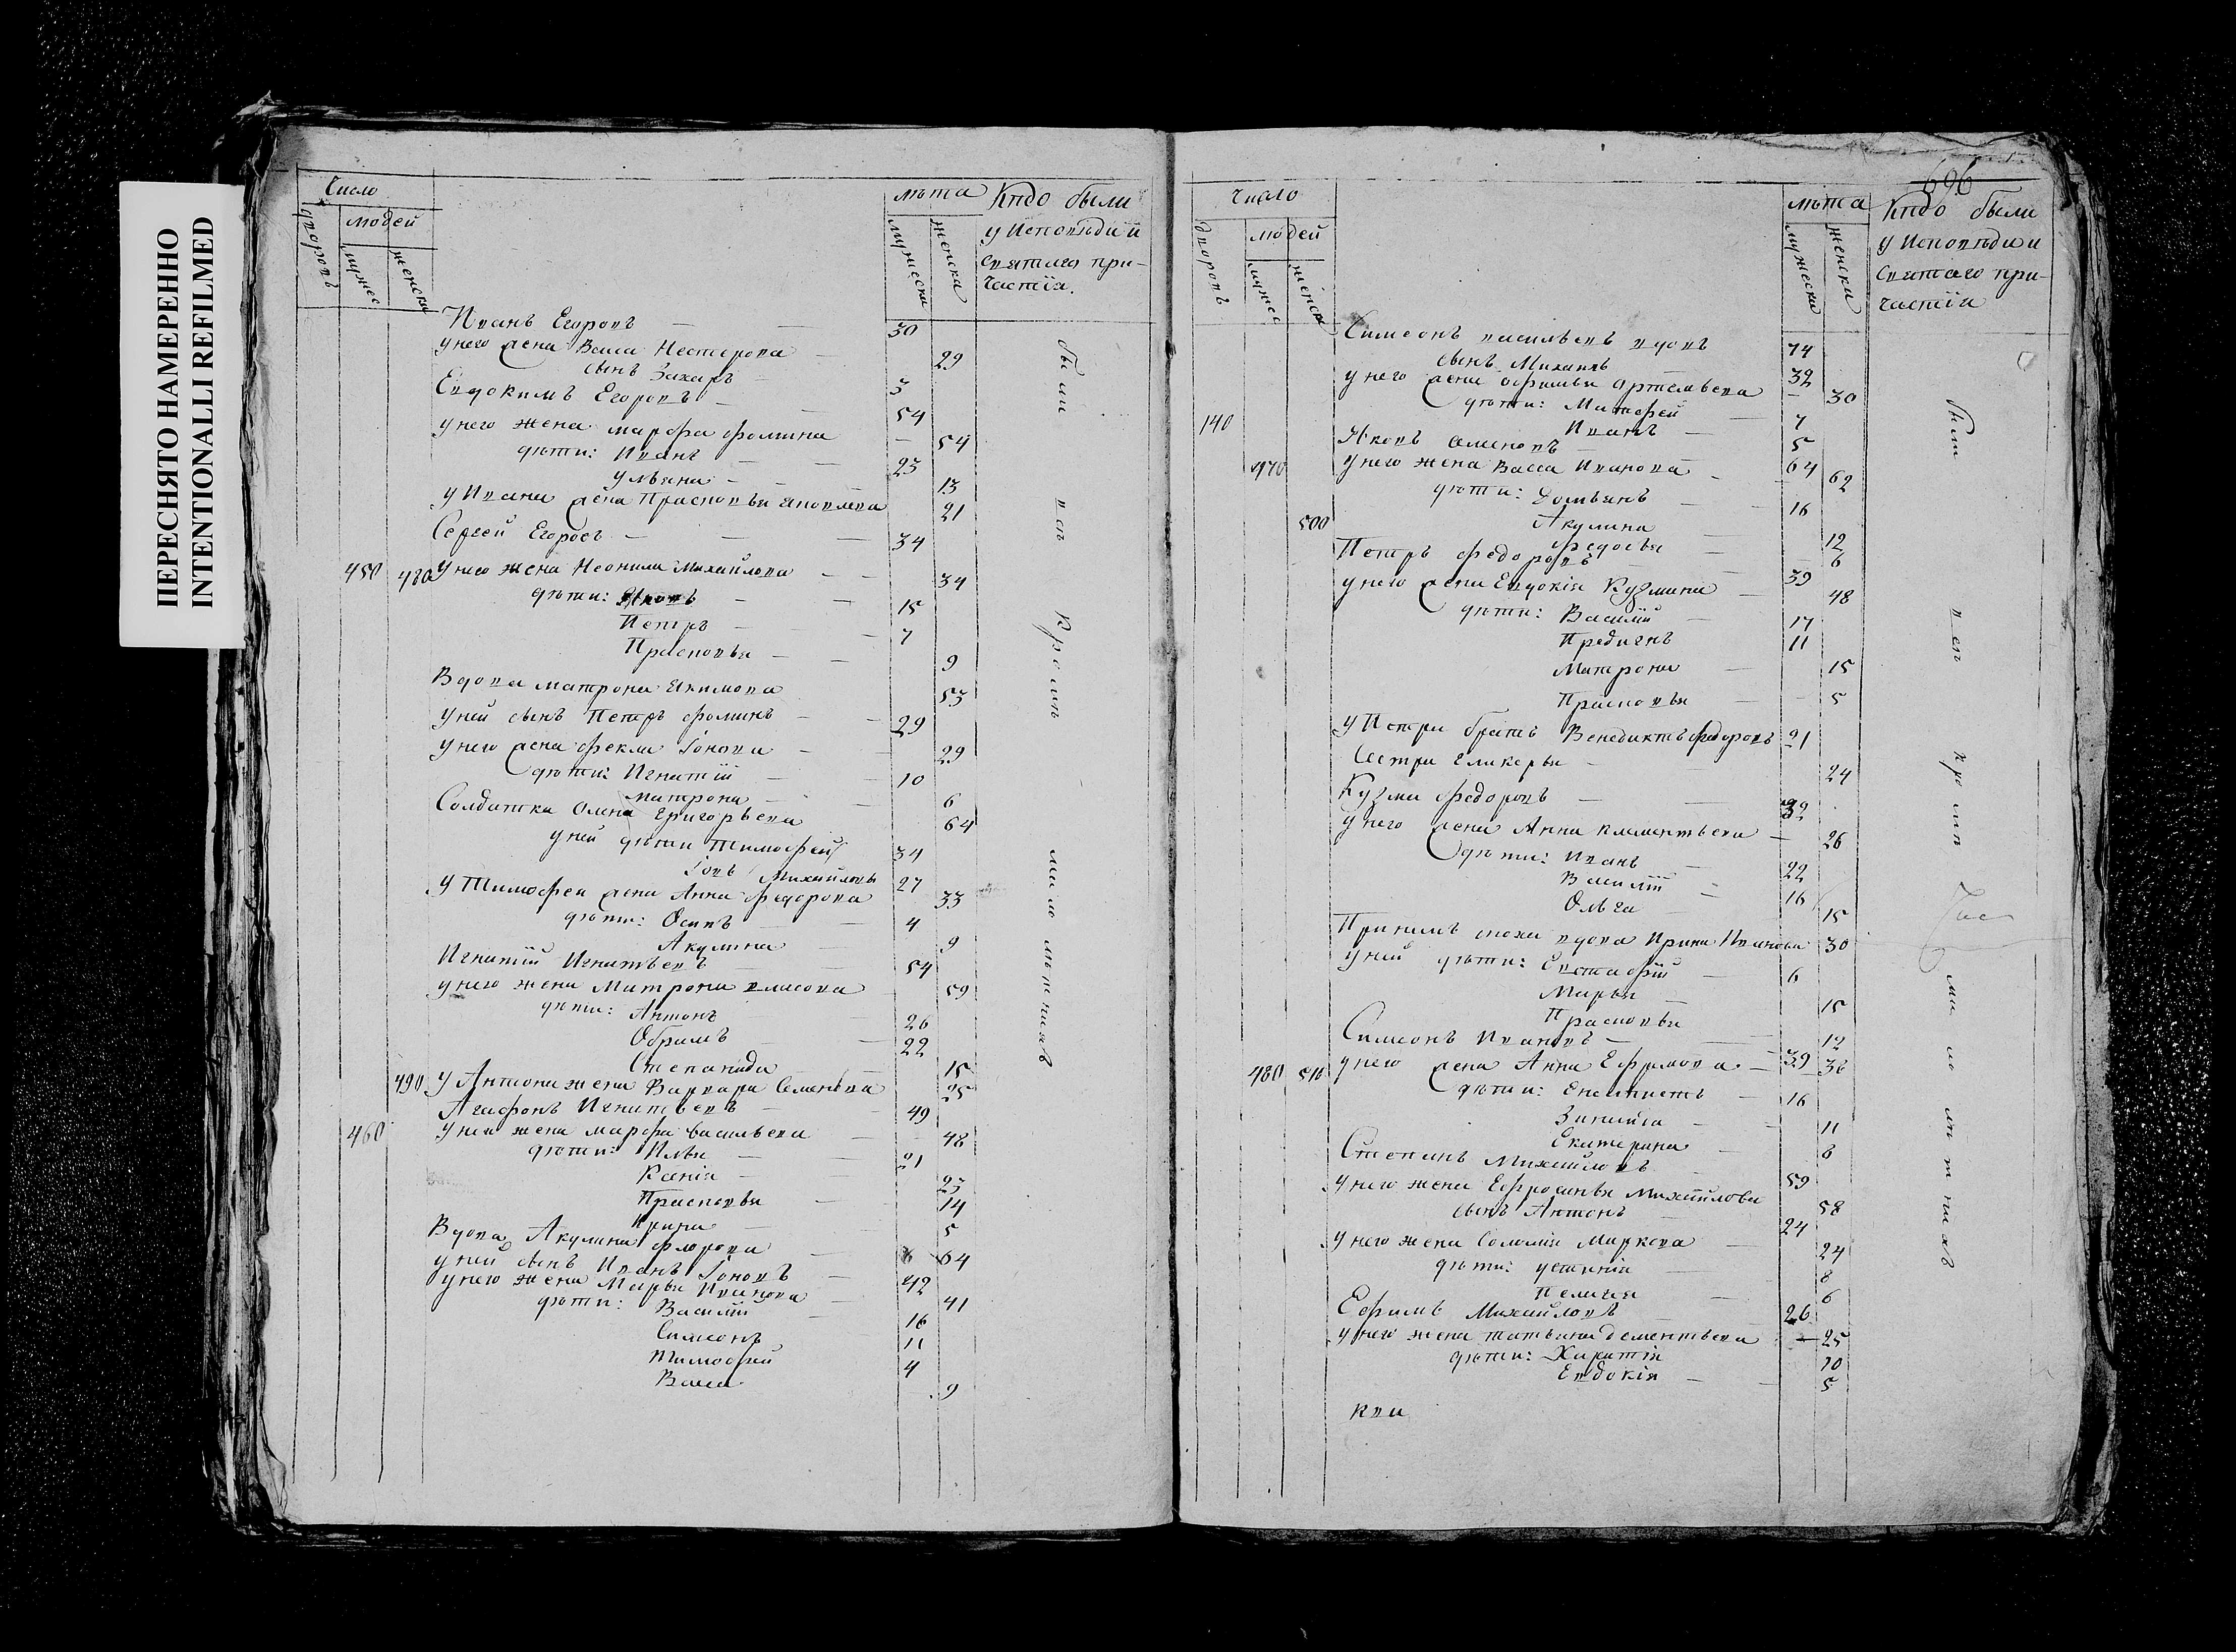 ПЕРЕСНЯТО НАМЕРЕННО
INTENTIONALLI REFILMED
Число
дворовъ
людей
мужес
женски
лѣта
мужески
женска
Кто были
у Исповѣди и
Святаго при-
частїя.
Иванъ Егоровъ 30
у него жена Васса Нестерова 29
сынъ Захаръ 3
Евдокимъ Егоровъ 54
у него жена Марфа Фомина 54
дѣти: Иванъ 23
Ульяна 13
у Ивана жена Прасковья 21
Сергей Егоровъ 34
450 480 у него жена Неонила Михайлова 34
дѣти: Яковъ 15
Петръ 7
Прасковья 9
Вдова Матрона Якимова 53
у ней сынъ Петръ Фоминъ 29
у него жена Фекла Іонова 29
дѣти: Игнатїй 10
Матрона 6
Солдатка Олена Григорьева 64
у ней дѣти Тимофей 34
Іовъ Михайловы 27
у Тимофея жена Анна Федорова 33
дѣти: Осипъ 4
Акулина 9
Игнатїй Игнатьевъ 54
у него жена Матрона Власова 59
дѣти: Антонъ 26
Обрамъ 22
Степанида 15
490 у Антона жена Варвара Семенова 25
Агафонъ Игнатьевъ 49
460 у него жена Марфа Васильева 48
дѣти: Илья 21
Ксенїя 23
Прасковья 14
Ирина 5
Вдова Акулина Флорова 64
у ней сынъ Иванъ Іоновъ 42
у него жена Марья Иванова 41
дѣти: Василїй 16
Симеонъ 11
Тимофей 4
Васса 9
были всѣ кромѣ малолѣтнихъ
696
Число
дворовъ
людей
мужес
женски
лѣта
мужески
женски
Кто были
у Исповѣди и
Святаго при-
частїя
Симеонъ Васильевъ вдовъ 74
сынъ Михаилъ 32
у него жена Офимья Артемьева 30
дѣти: Матфей 7
140 Иванъ 5
Яковъ Семеновъ 64
470 у него жена Васса Иванова 62
дѣти: Домьянъ 16
500 Акулина 12
Федосья 6
Петръ Федоровъ 39
у него жена Евдокїя Кузмина 48
дѣти: Василїй 17
11
Матрона 15
Прасковья 5
у Петра братъ Венедиктъ Федоровъ 21
Сестра Гликерья 24
Кузма Федоровъ 32
у него жена Анна Климентьева 26
дѣти: Иванъ 22
Василїй 16
Ольга 15
вдова Ирина Иванова 30
у ней дѣти: Евстафїй 6
Марья 15
Прасковья 12
Симеонъ Ивановъ 39
480 510 у него жена Анна Ефимова 36
дѣти: 16
Зиновїя 11
Екатерина 6
Степанъ Михайловъ 59
у него жена Ефросинья Михайлова 58
сынъ Антонъ 24
у него жена Соломїя Маркова 24
дѣти: Устинїя 8
Пелагея 6
Ефимъ Михайловъ 26
у него жена Татьяна Дементьева 25
дѣти: Харитїя 10
Евдокїя 5
были всѣ кромѣ малолѣтнихъ